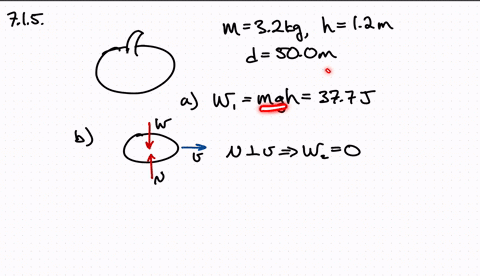 7.1.5.
m = 3.2kg, h = 1.2m
d = 50.0m
a) W₁ = mgh = 37.7 J
b)
W
v
N
N ⊥ v ⇒ W₂ = 0